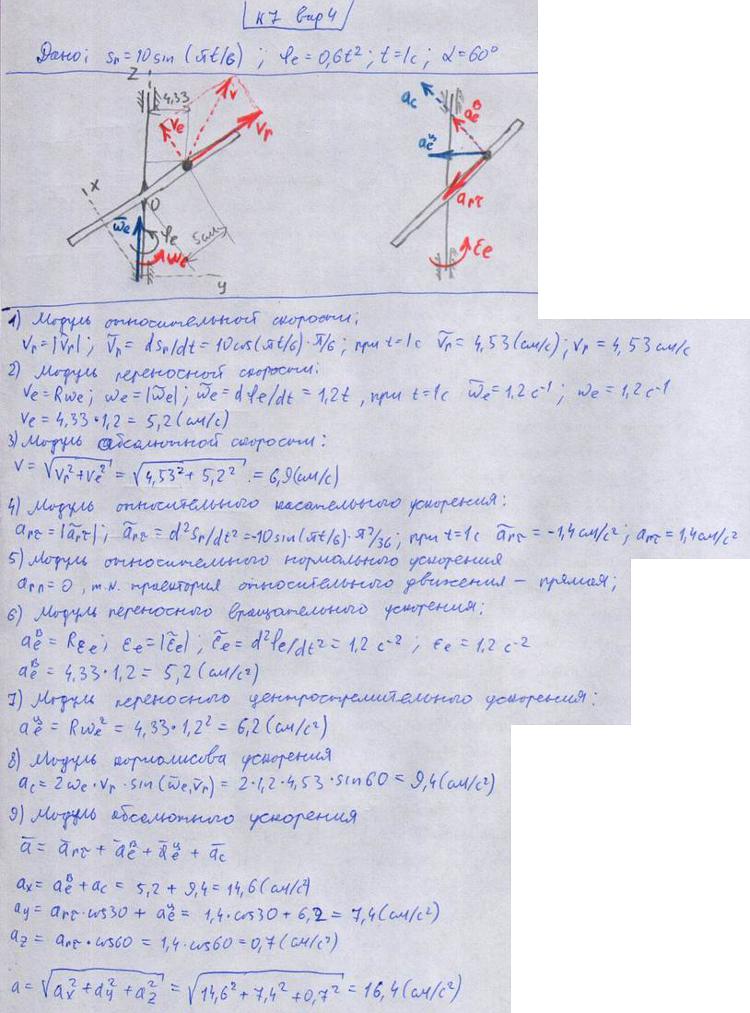 К7 вар 4
Дано: Sr = 10 sin (πt/6) ; φe = 0,6t² ; t = 1c ; α = 60°
z
4,33
v
ve
vr
x
O
ω̄e
φe
ωe
5см
y
ac
aeᴮ
aeᶸ
arτ
εe
1) Модуль относительной скорости:
Vr = |Ṽr| ; Ṽr = dSr/dt = 10cos(πt/6)·π/6 ; при t=1c Ṽr = 4,53 (см/с) ; Vr = 4,53 см/с
2) Модуль переносной скорости:
Ve = Rωe ; ωe = |ω̃e| ; ω̃e = dφe/dt = 1,2t , при t=1c ω̃e = 1,2 c⁻¹ ; ωe = 1,2 c⁻¹
Ve = 4,33·1,2 = 5,2 (см/с)
3) Модуль абсолютной скорости:
V = √(Vr² + Ve²) = √(4,53² + 5,2²) = 6,9 (см/с)
4) Модуль относительного касательного ускорения:
arτ = |ãrτ| ; ãrτ = d²Sr/dt² = -10sin(πt/6)·π²/36 ; при t=1c ãrτ = -1,4 см/с² ; arτ = 1,4 см/с²
5) Модуль относительного нормального ускорения
arn = 0 , т.к. траектория относительного движения – прямая;
6) Модуль переносного вращательного ускорения:
aeᴮ = Rεe ; εe = |ε̃e| ; ε̃e = d²φe/dt² = 1,2 c⁻² ; εe = 1,2 c⁻²
aeᴮ = 4,33·1,2 = 5,2 (см/с²)
7) Модуль переносного центростремительного ускорения:
aeᶸ = Rωe² = 4,33·1,2² = 6,2 (см/с²)
8) Модуль кориолисова ускорения
ac = 2ωe·Vr·sin(ω̄e,v̄r) = 2·1,2·4,53·sin60 = 9,4 (см/с²)
9) Модуль абсолютного ускорения
ā = ārτ + āeᴮ + āeᶸ + āc
ax = aeᴮ + ac = 5,2 + 9,4 = 14,6 (см/с²)
ay = arτ·cos30 + aeᶸ = 1,4·cos30 + 6,2 = 7,4 (см/с²)
az = arτ·cos60 = 1,4·cos60 = 0,7 (см/с²)
a = √(ax² + ay² + az²) = √(14,6² + 7,4² + 0,7²) = 16,4 (см/с²)